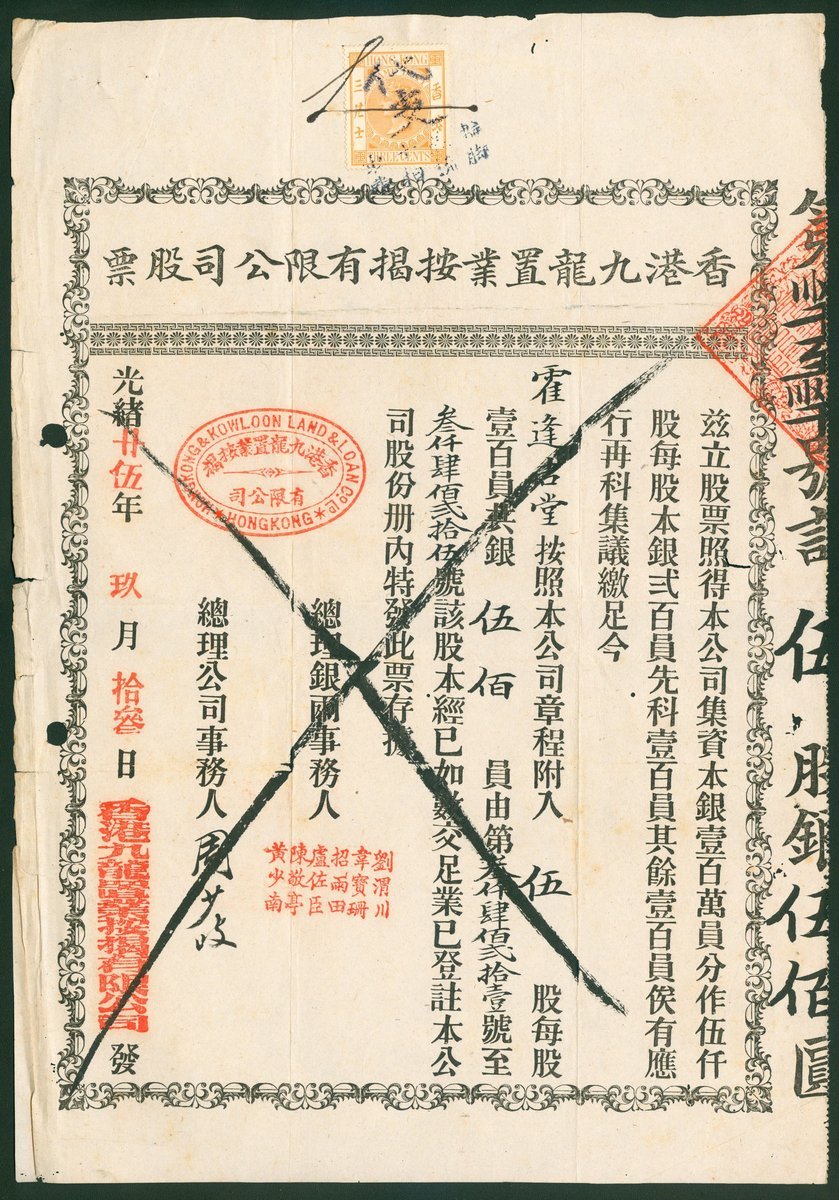 HONG KONG
三仙士
THREE CENTS
香港九龍置業按揭有限公司股票
號計 伍股銀伍佰圓
茲立股票照得本公司集資本銀壹百萬員分作伍仟
股每股本銀弍百員先科壹百員其餘壹百員俟有應
行再科集議繳足今
霍逢君堂按照本公司章程附入 伍 股每股
壹百員共銀 伍佰 員由第叁仟肆佰弍拾壹號至
叁仟肆佰弍拾伍號該股本經已如數交足業已登註本公
司股份册內特發此票存據
總理銀兩事務人
劉渭川
韋寶珊
招雨田
盧佐臣
陳敬亭
黃少南
總理公司事務人 周少岐
HONGKONG & KOWLOON LAND & LOAN CO. LD
香港九龍置業按揭
有限公司
HONGKONG
光緒廿伍年 玖月拾叁日 香港九龍置業按揭有限公司 發